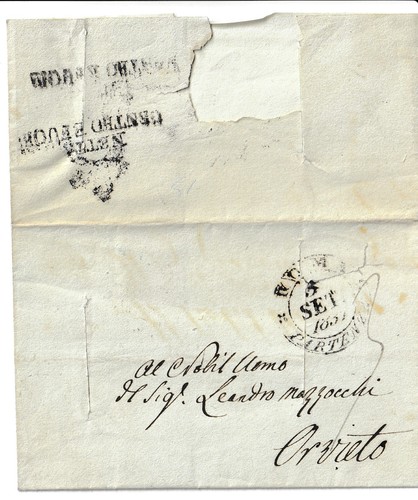 NETTA
DENTRO E FUORI
NETTA
DENTRO E FUORI
ROMA
SET
1837
PARTENZA
Al Nobil Uomo
Il Sigr. Leandro Mazzocchi
Orvieto